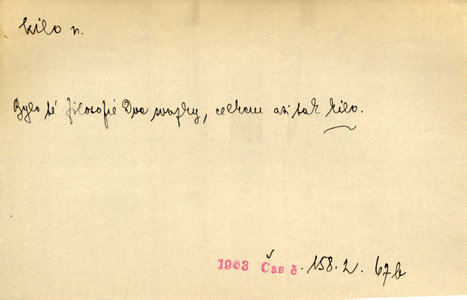 kilo n.
Bylo té filosofie dva svazky, celkem asi tak kilo.
1903 Čas č. 158. 2. 67b